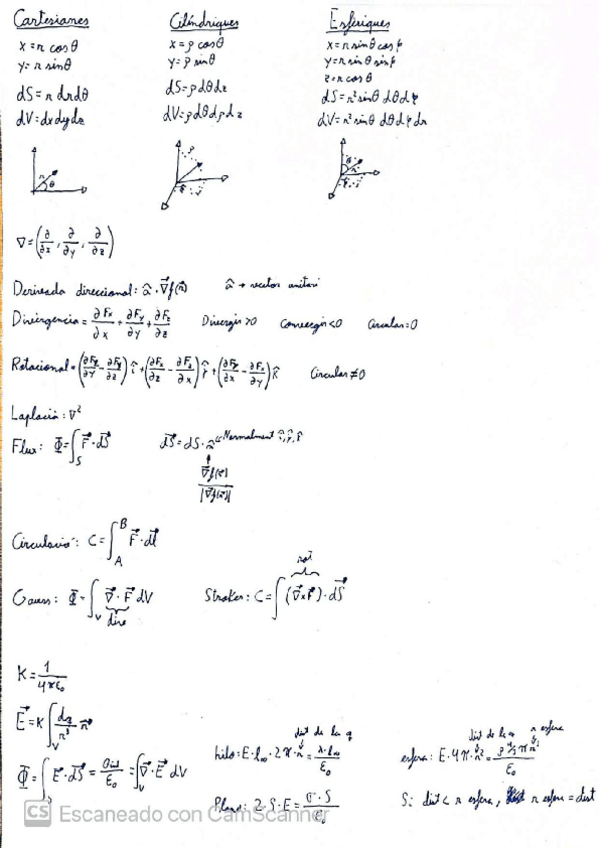 Cartesianes
x = r cosθ
y = r sinθ
dS = r dr dθ
dV = dx dy dz
Cilíndriques
x = ρ cosθ
y = ρ sinθ
dS = ρ dθ dz
dV = ρ dθ dρ dz
Esfèriques
x = r sinθ cosφ
y = r sinθ sinφ
z = r cosθ
dS = r² sinθ dθ dφ
dV = r² sinθ dθ dφ dr
∇ = (∂/∂x, ∂/∂y, ∂/∂z)
Derivada direccional: â · ∇f(r⃗) â → vector unitari
Divergència = ∂Fx/∂x + ∂Fy/∂y + ∂Fz/∂z Divergir > 0 Convergir < 0 Circular = 0
Rotacional = (∂Fz/∂y − ∂Fy/∂z) î + (∂Fx/∂z − ∂Fz/∂x) ĵ + (∂Fy/∂x − ∂Fx/∂y) k̂ Circular ≠ 0
Laplacià: ∇²
Flux: Φ = ∫S F⃗ · dS⃗ dS⃗ = dS · n̂ Normalment î, ĵ, k̂
∇⃗f(r⃗) / |∇⃗f(r⃗)|
Circulació: C = ∫A^B F⃗ · dl⃗
Gauss: Φ = ∫V ∇⃗ · F⃗ dV
dive
Strokes: C = ∫ (∇⃗ × F⃗) · dS⃗
rot
K = 1/4πε₀
E⃗ = K ∫V dq/r³ r⃗
Φ = ∫S E⃗ · dS⃗ = Qint/ε₀ = ∫V ∇⃗ · E⃗ dV
dist de la q
hilo: E · l∞ · 2π · r = λ · l∞ / ε₀
Plano: 2 · S · E = σ · S / ε₀
dist de la q r esfera
esfera: E · 4π · r² = ρ 4/3 π r³ / ε₀
Si dist < r esfera, r esfera = dist
CS Escaneado con CamScanner